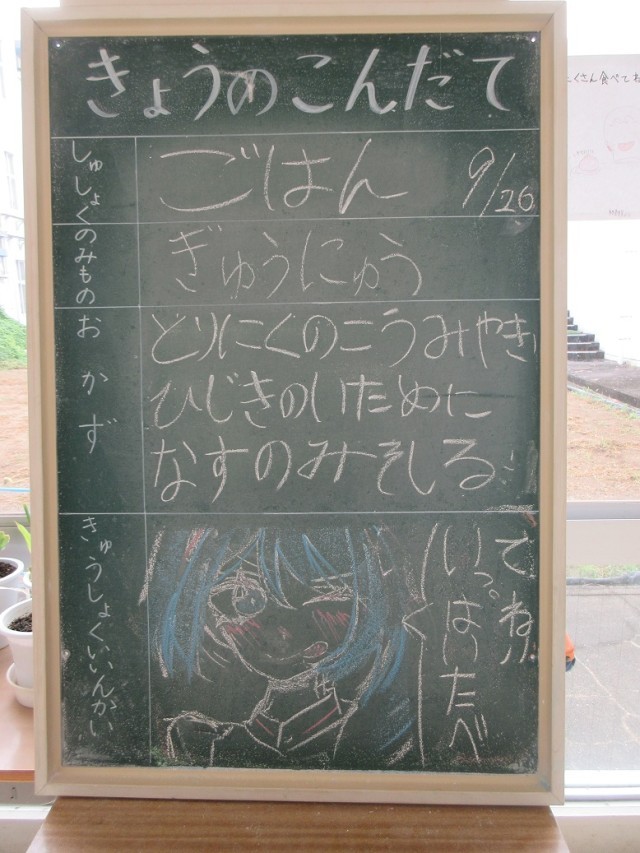 きょうのこんだて
しゅしょく
ごはん
9/26
のみもの
ぎゅうにゅう
おかず
とりにくのこうみやき
ひじきのいために
なすのみそしる
きゅうしょくいいんかい
いっぱいたべ
てね!!
くさん食べてね